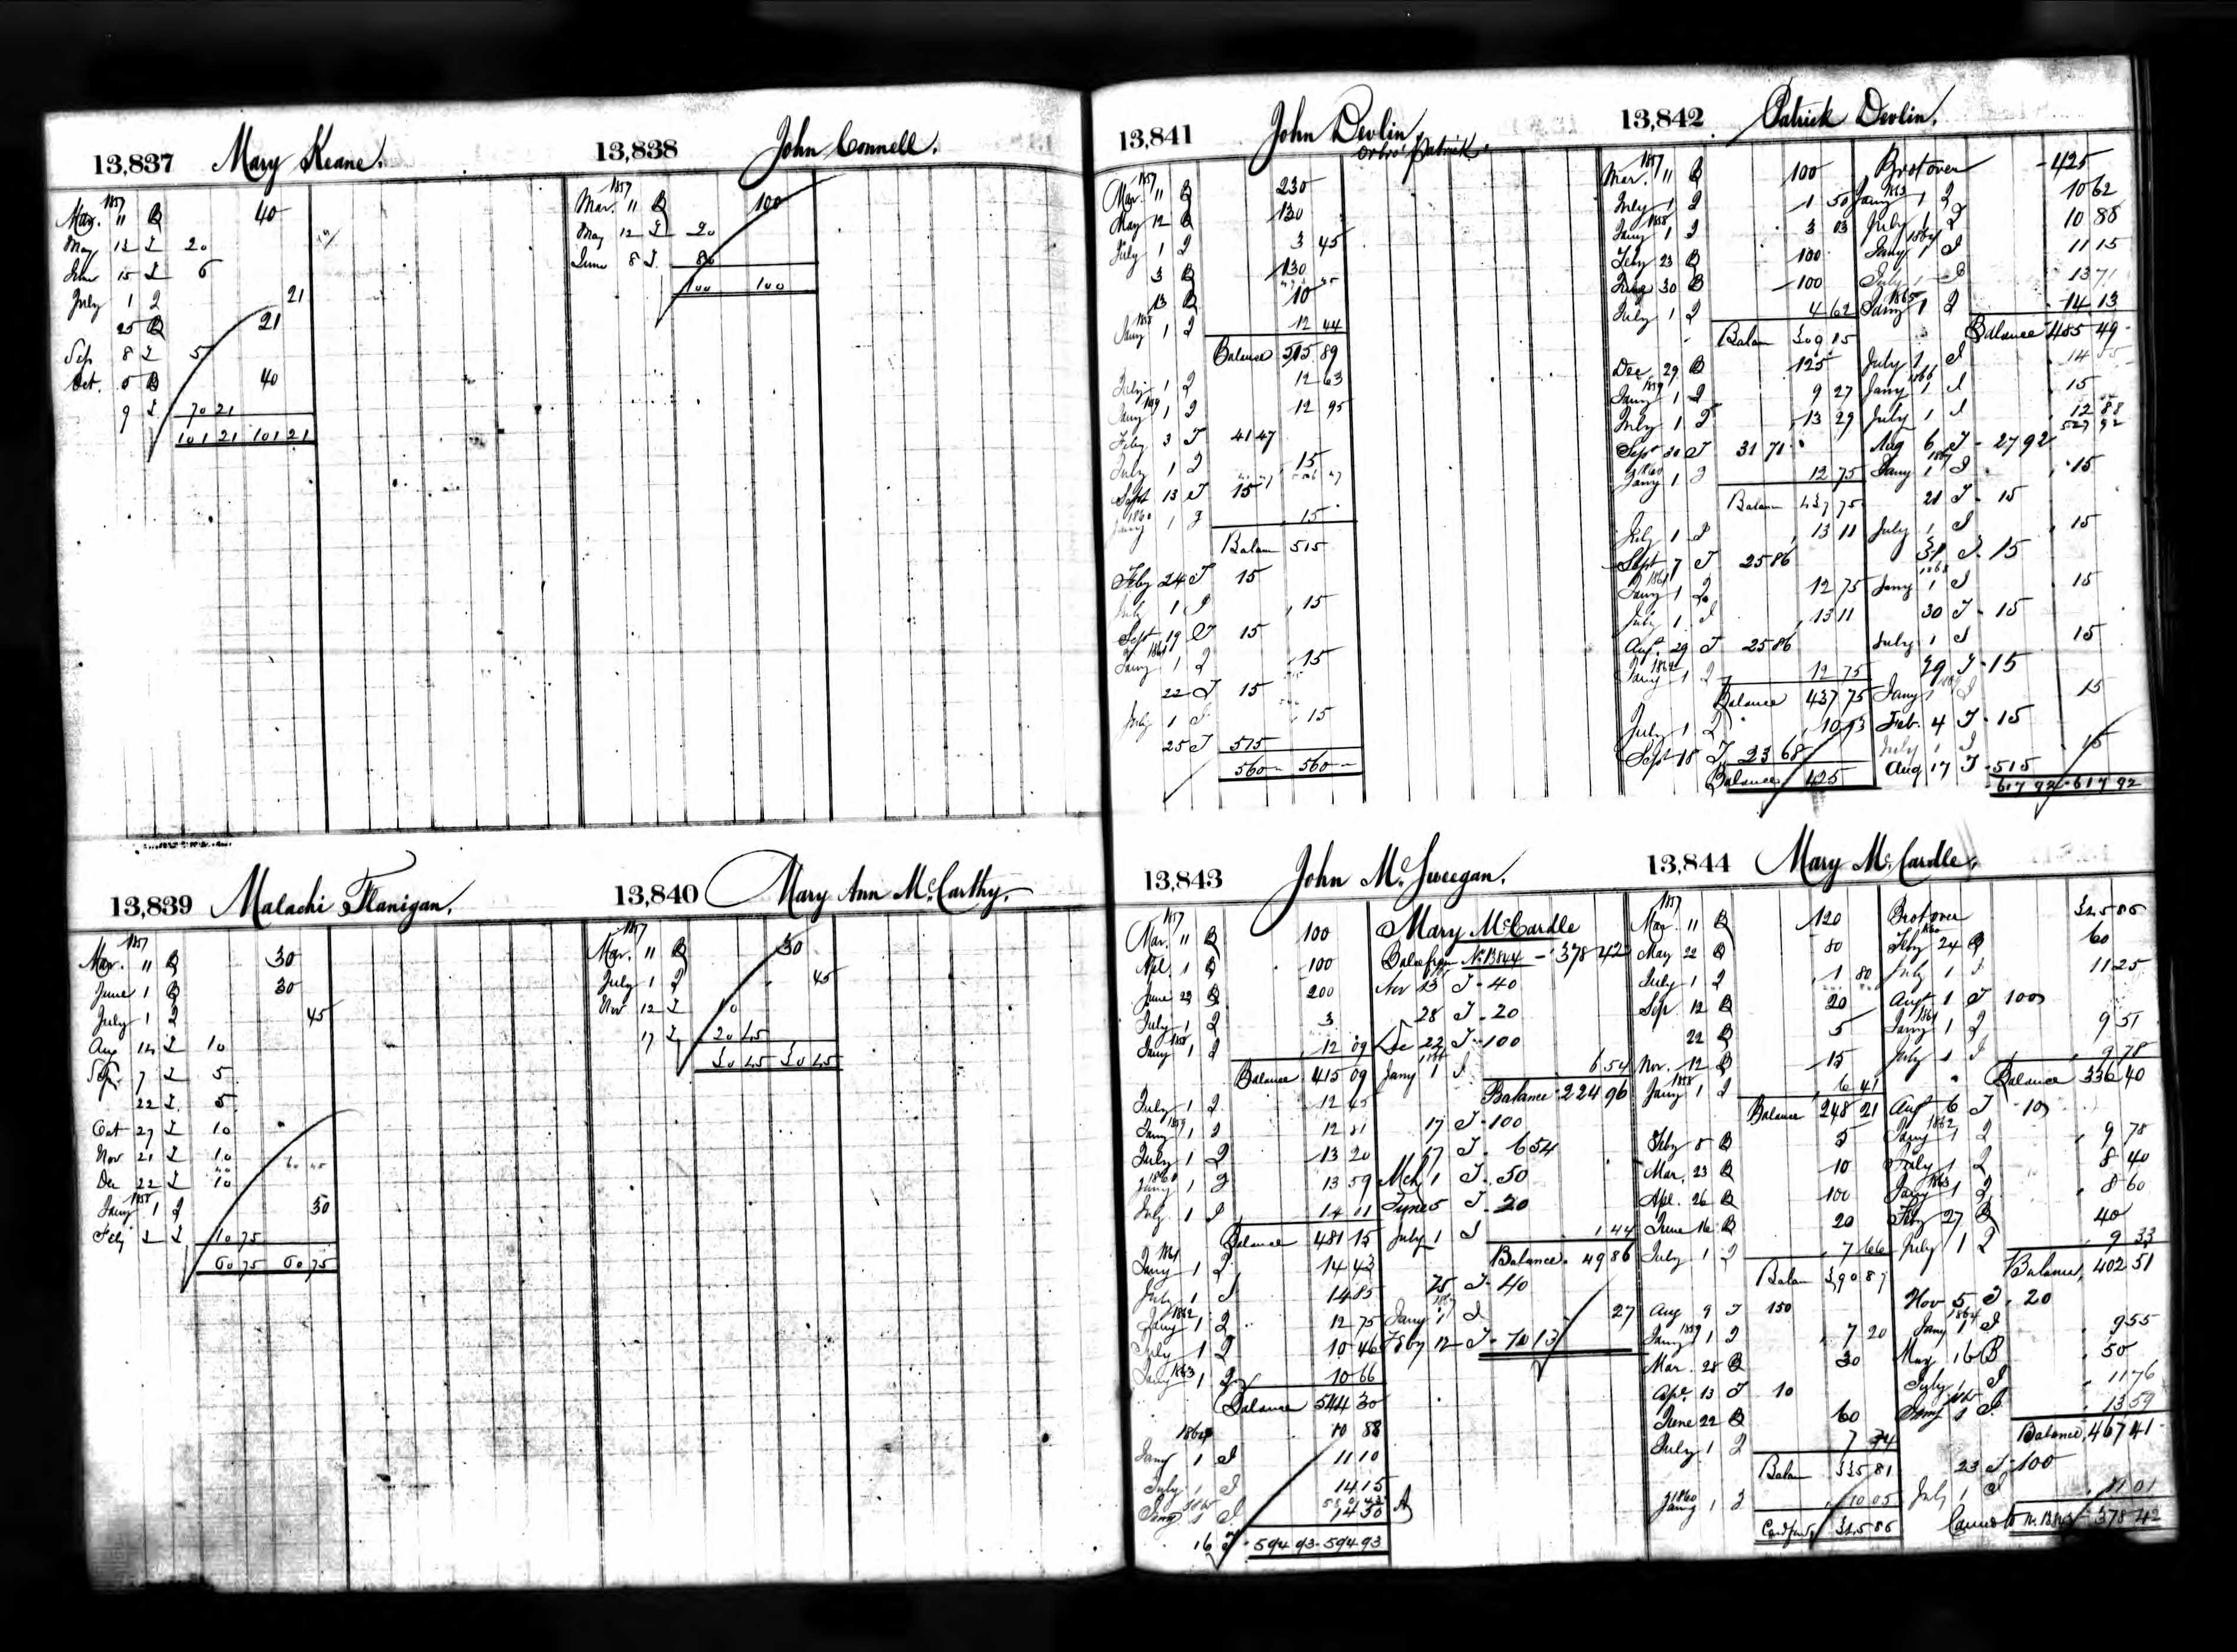 13,837 Mary Keane.
1857
Mar. 11 B 40
May 12 I 20
June 15 I 6
July 1 I 21
25 B 21
Sep 8 I 5
Oct. 5 B 40
9 I 70 21
101 21 101 21
13,838 John Connell.
1857
Mar. 11 B 100
May 12 I 20
June 8 I 80
100 100
13,839 Malachi Flanigan.
1857
Mar. 11 B 30
June 1 B 30
July 1 I 45
Aug 14 I 10
Sep. 7 I 5
22 I 5
Oct 27 I 10
Nov 21 I 10
Dec 22 I 10
1858
Jany 1 I 30
Feby 2 I 10 75
60 75 60 75
13,840 Mary Ann McCarthy.
1857
Mar. 11 B 30
July 1 I 45
Nov 12 I 10
17 I 20 45
30 45 30 45
13,841 John Devlin,
or bro' Patrick.
1857
Mar. 11 B 230
May 12 B 130
July 1 I 3 45
3 B 130
13 B 10
1858
Jany 1 I 12 44
Balance 515 89
July 1 I 12 63
1859
Jany 1 I 12 95
Feby 3 T 41 47
July 1 I 15
Sept. 13 T 15
1860
Jany 1 I 15
Balan 515
Feby 24 T 15
July 1 I 15
Sept 19 T 15
1861
Jany 1 I 15
22 T 15
July 1 I 15
25 T 515
560 560
13,842 Patrick Devlin.
1857
Mar. 11 B 100
July 1 I 1 50
1858
Jany 1 I 3 03
Feby 23 B 100
June 30 B 100
July 1 I 4 62
Balan 309 15
Dec. 29 B 125
1859
Jany 1 I 9 27
July 1 I 13 29
Sept 30 T 31 71
1860
Jany 1 I 12 75
Balan 437 75
July 1 I 13 11
Sept 7 T 25 86
1861
Jany 1 I 12 75
July 1 I 13 11
Aug. 29 T 25 86
1862
Jany 1 I 12 75
Balance 437 75
July 1 I 10 93
Sept 18 T 23 68
Balance 425
Brot over 425
1863
Jany 1 I 10 62
July 1 I 10 88
1864
Jany 1 I 11 15
July 1 I 13 71
1865
Jany 1 I 14 13
Balance 485 49
July 1 I 14 55
1866
Jany 1 I 15
July 1 I 12 88
527 92
Aug 6 T 27 92
1867
Jany 1 I 15
21 T 15
July 1 I 15
31 T 15
1868
Jany 1 I 15
30 T 15
July 1 I 15
29 T 15
Jany 1 I 15
Feb. 4 T 15
July 1 I 15
Aug 17 T 515
617 92 617 92
13,843 John McSweegan.
1857
Mar. 11 B 100
Apl. 1 B 100
June 29 B 200
July 1 I 3
1858
Jany 1 I 12 09
Balance 415 09
July 1 I 12 45
1859
Jany 1 I 12 81
July 1 I 13 20
1860
Jany 1 I 13 59
July 1 I 14 01
Balance 481 15
1861
Jany 1 I 14 43
July 1 I 14 85
1862
Jany 1 I 12 75
July 1 I 10 46
1863
Jany 1 I 10 66
Balance 544 30
10 88
1864
Jany 1 I 11 10
July 1 I 14 15
1865
Jany 1 I 14 50
16 T 594 93 594 93
Mary McCardle
Balce from No 13844 378 42
Nov 13 T 40
28 T 20
Dec 22 T 100
Jany 1 I 6 54
Balance 224 96
17 T 100
17 T 6 54
Mch 1 T 50
June 5 T 20
July 1 I 1 44
Balance 49 86
25 T 40
Jany 1 I 27
Feby 12 T 10 13
13,844 Mary McCardle.
1857
Mar. 11 B 120
May 22 B 80
July 1 I 1 80
Sep. 12 B 20
22 B 5
Nov. 12 B 15
1858
Jany 1 I 6 41
Balance 248 21
Feby 8 B 5
Mar. 23 B 10
Apl. 26 B 100
June 16 B 20
July 1 I 7 66
Balan 390 87
Aug 9 T 150
1859
Jany 1 I 7 20
Mar. 28 B 30
Apl. 13 T 10
June 22 B 60
July 1 I 7 74
Balan 335 81
1860
Jany 1 I 10 05
Card ford 345 86
Brot over 345 86
1860
Feby 24 B 60
July 1 I 11 25
Augt 1 T 100
1861
Jany 1 I 9 51
July 1 I 9 78
Balance 336 40
Augt 6 T 10
1862
Jany 1 I 9 78
July 1 I 8 40
1863
Jany 1 I 8 60
Feby 27 B 40
July 1 I 9 33
Balance 402 51
Nov 5 T 20
1864
Jany 1 I 9 55
May 16 B 50
July 1 I 11 76
1865
Jany 1 I 13 59
Balance 467 41
23 T 100
July 1 I 11 01
Carried to No. 13843 378 42